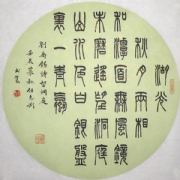 湖光
秋月兩相
和潭面無風鏡
未磨遙望洞庭
山水翠白銀盤
裏一青螺
劉禹錫詩望洞庭